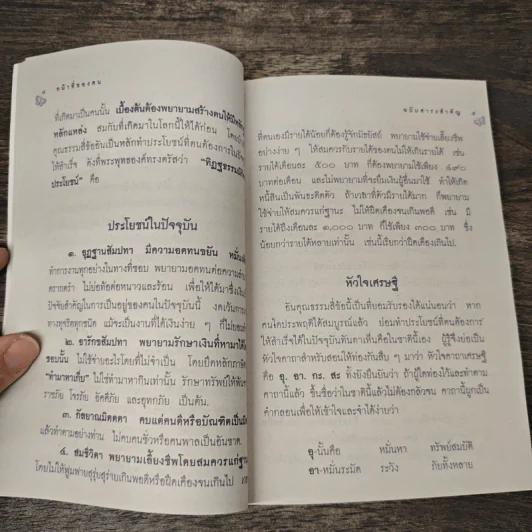 หน้าที่ของคน
ที่เกิดมาเป็นคนนั้น เบื้องต้นต้องพยายามสร้างตนให้มี
หลักแหล่ง สมกับที่เกิดมาในโลกนี้ให้ได้ก่อน
คุณธรรมสี่ข้ออันเป็นหลักทำประโยชน์ที่ตนต้องการใน
ให้สำเร็จ ดังที่พระพุทธองค์ทรงตรัสว่า "ทิฏฐะธรรม
ประโยชน์" คือ
ประโยชน์ในปัจจุบัน
๑. อุฏฐานสัมปทา มีความอดทนขยัน หมั่น
ทำการงานทุกอย่างในทางที่ชอบ พยายามอดทนต่อความ
ตรากตรำ ไม่ย่อท้อต่อหนาวและร้อน เพื่อให้ได้มาซึ่ง
ปัจจัยสำคัญในการเป็นอยู่ของคนในปัจจุบันนี้ งดเว้น
ทางทุจริตทุกชนิด แม้จะเป็นงานที่ได้เงินง่าย ๆ ก็ไม่ยอม
๒. อารักขสัมปทา พยายามรักษาเงินที่หามาได้
ชอบนั้น ไม่ใช้จ่ายอะไรโดยที่ไม่จำเป็น โดยยึดหลักภาษิต
"ทำมาหาเก็บ" ไม่ใช่ทำมาหากินเท่านั้น รักษาทรัพย์ให้พ้น
ราชภัย โจรภัย อัคคีภัย และอุทกภัย เป็นต้น
๓. กัลยาณมิตตตา คบแต่คนดีหรือบัณฑิตเป็น
แล้วทำตามอย่างท่าน ไม่คบคนชั่วหรือคนพาลเป็นอันขาด
๔. สมชีวิตา พยายามเลี้ยงชีพโดยสมควรแก่ฐานะ
โดยไม่ให้ฟูมฟายสุรุ่ยสุร่ายเกินพอดีหรือฝืดเคืองจนเกินไป
ฉบับสาระสำคัญ
ที่ตนเองมีรายได้น้อยก็ต้องรู้จักมัธยัสถ์ พยายามใช้จ่ายเลี้ยงชีพ
อย่างง่าย ๆ ให้สมควรกับรายได้ของตนไม่ให้เกินรายได้ เช่น
รายได้เดือนละ ๕๐๐ บาท ก็ต้องพยายามใช้เพียง ๔๙๐
บาทต่อเดือน และไม่พยายามที่จะยืมเงินผู้อื่นมาใช้ ทำให้เกิด
หนี้สินเป็นพันธะติดตัว ถ้าเวลาที่ตัวมีรายได้มาก ก็พยายาม
ใช้จ่ายให้สมควรแก่ฐานะ ไม่ให้ฝืดเคืองจนเกินพอดี เช่น มี
รายได้ถึงเดือนละ ๑,๐๐๐ บาท ก็ใช้เพียง ๓๐๐ บาท ซึ่ง
น้อยกว่ารายได้หลายเท่านั้น เช่นนี้เรียกว่าฝืดเคืองเกินไป
หัวใจเศรษฐี
อันคุณธรรมสี่ข้อนี้เป็นที่ยอมรับรองได้แน่นอนว่า หาก
คนใดประพฤติได้สมบูรณ์แล้ว ย่อมทำประโยชน์ที่ตนต้องการ
ให้สำเร็จได้ในปัจจุบันทันตาเห็นคือในชาตินี้เอง ผู้รู้จึงย่อเป็น
หัวใจคาถาสำหรับสอนให้ท่องกันสืบ ๆ มาว่า หัวใจคาถาเศรษฐี
คือ อุ. อา. กะ. สะ ทั้งยังยืนยันว่า ถ้าผู้ใดท่องไว้และทำตาม
คาถานี้แล้ว ขึ้นชื่อว่าในชาตินี้แล้วไม่ต้องกลัวจน คาถานี้ผูกเป็น
คำกลอนเพื่อให้เข้าใจและจำได้ง่ายว่า
อุ-นั้นคือ หมั่นหา ทรัพย์สมบัติ
อา-หมั่นระมัด ระวัง ภัยทั้งหลาย